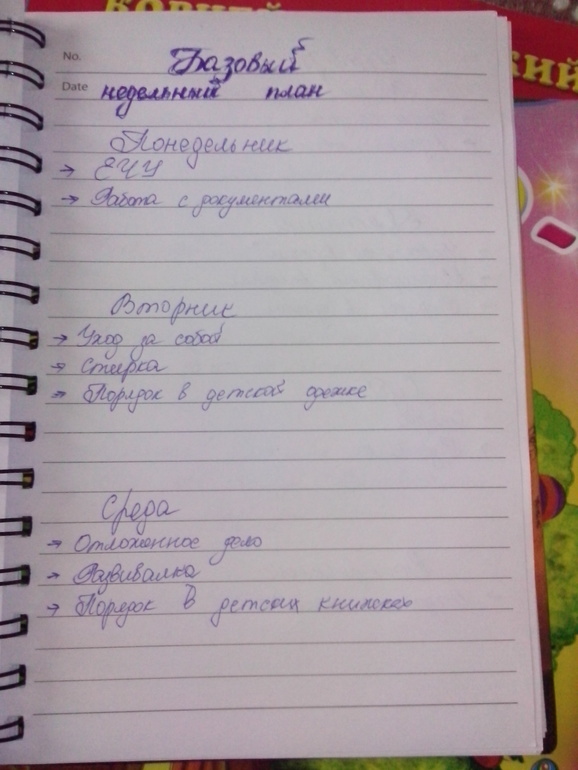 КОРНЕЙ
КИЙ
No.
Базовый
Date недельный план
Понедельник
→ ЕЧУ
→ Работа с документами
Вторник
→ Уход за собой
→ Стирка
→ Порядок в детской одежке
Среда
→ Отложенное дело
→ Развивалка
→ Порядок в детских книжках